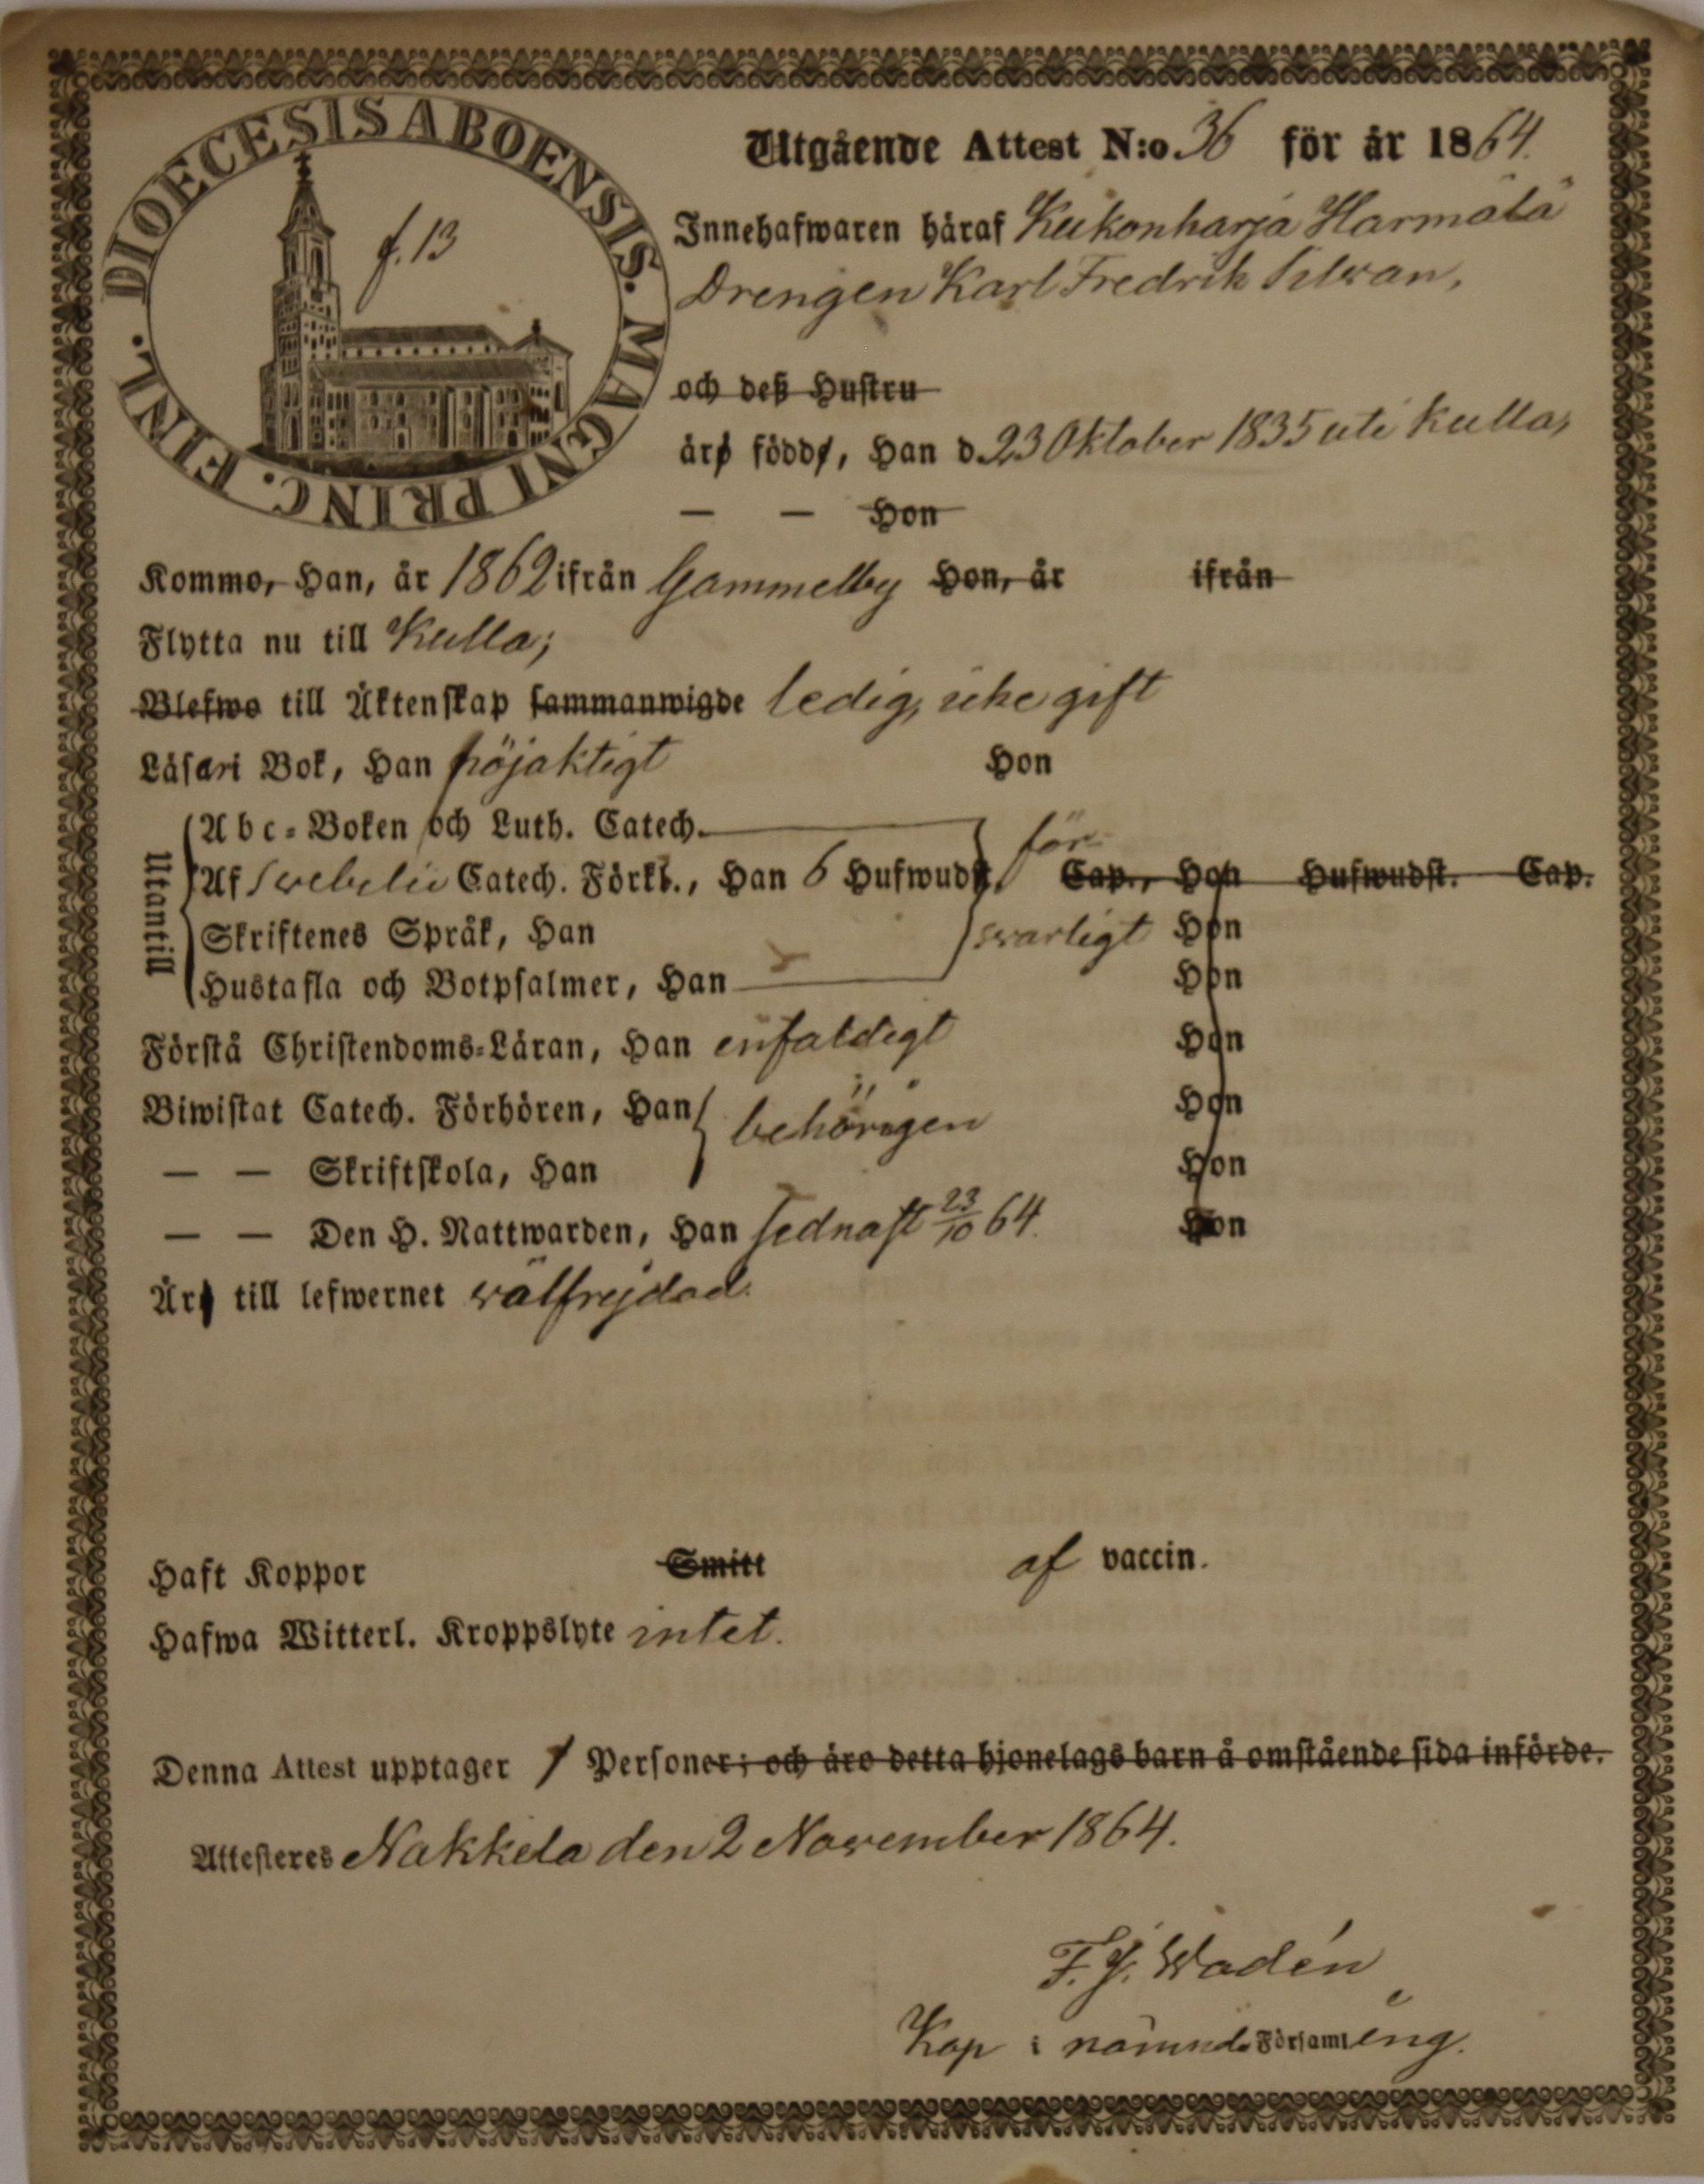 DIOECESIS ABOENSIS. MAGNI PRINC. FINL.
f. 13
Utgående Attest N:o 36 för år 1864.
Innehafwaren häraf Kukonharja Harmälä
Drengen Karl Fredrik Silvan,
och deß Hustru
äro födde, Han d. 23 Oktober 1835 uti Kulla,
— — Hon
Kommo, Han, år 1862 ifrån Gammelby Hon, år ifrån
Flytta nu till Kulla;
Blefwo till Äktenskap sammanwigde ledig, icke gift
Läsa i Bok, Han nöjaktigt Hon
Utantill
Abc-Boken och Luth. Catech.
Af Swebelii Catech. Förkl., Han 6 Hufwudst. för- Cap., Hon Hufwudst. Cap.
Skriftenes Språk, Han swarligt Hon
Hustafla och Botpsalmer, Han Hon
Förstå Christendoms-Läran, Han enfaldigt Hon
Biwistat Catech. Förhören, Han behörigen Hon
— — Skriftskola, Han Hon
— — Den H. Nattwarden, Han sednast 23/10 64. Hon
Äro till lefwernet wälfrejdad.
Haft Koppor Smitt af vaccin.
Hafwa Witterl. Kroppslyte intet.
Denna Attest upptager 1 Personer; och äro detta hjonelags barn å omstående sida införde.
Attesteres Nakkela den 2 November 1864.
F. J. Wadén
Kap i nämnde Församling.